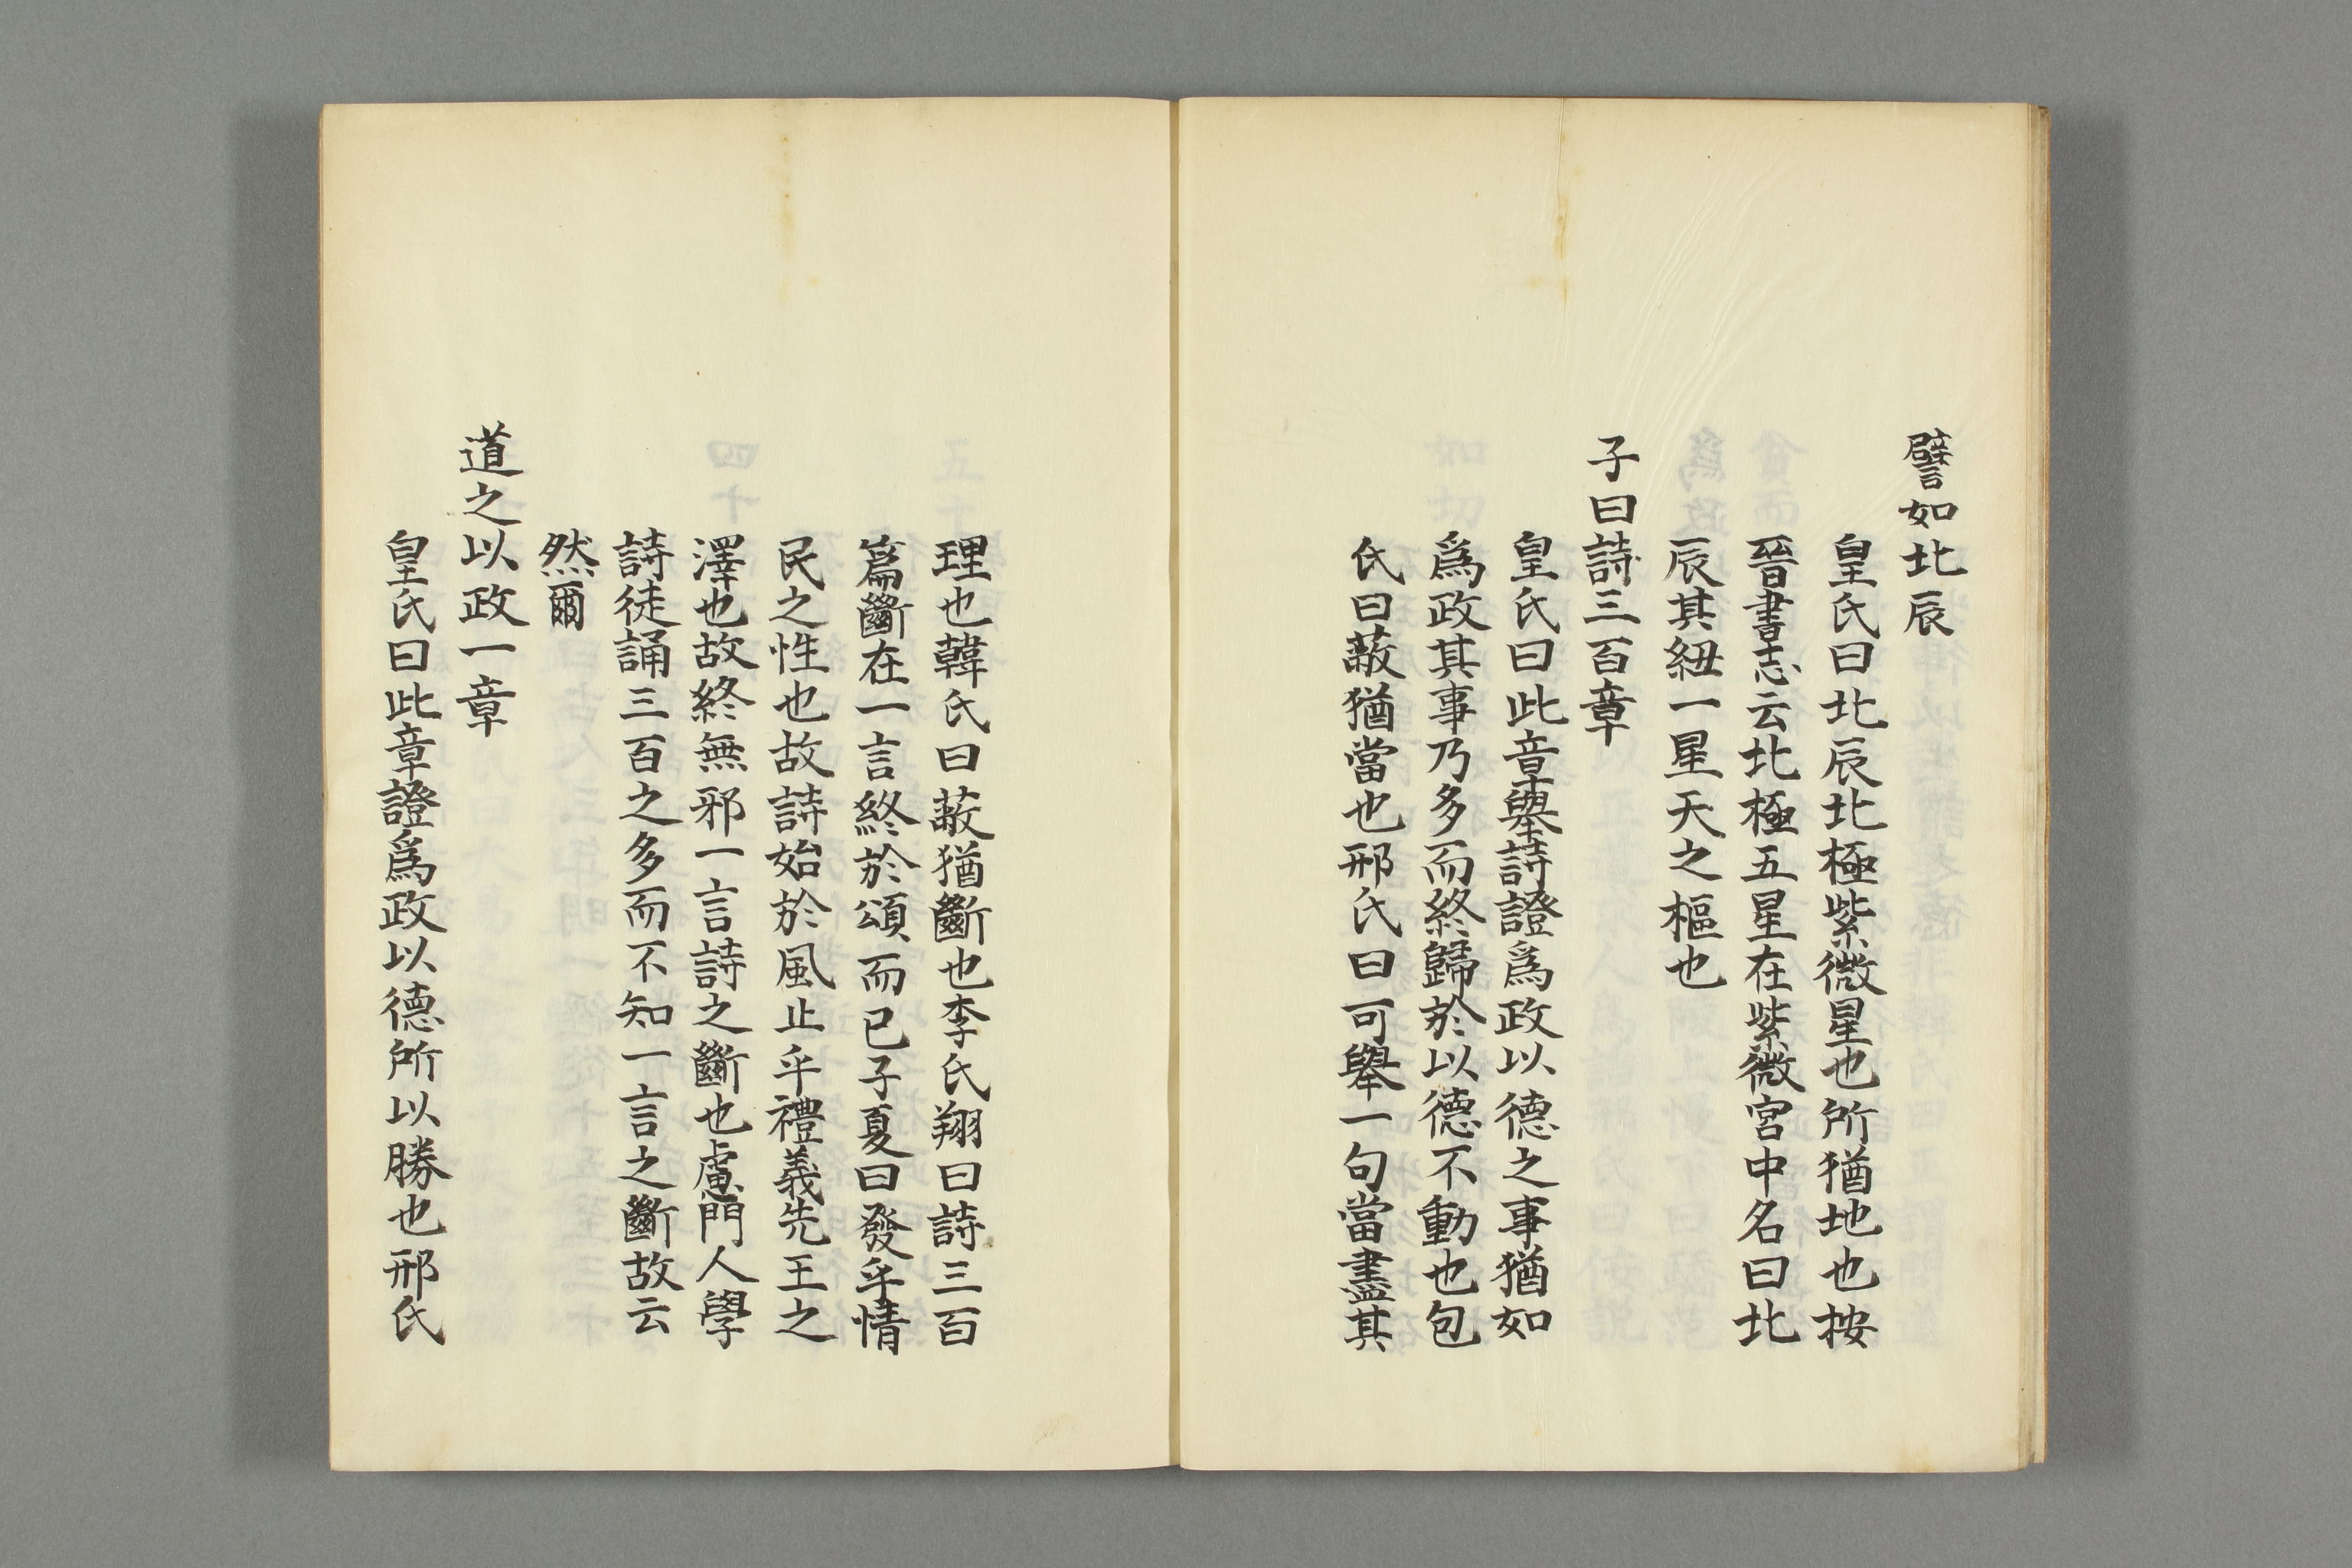 譬如北辰
皇氏曰北辰北極紫微星也所猶地也按
晉書志云北極五星在紫微宮中名曰北
辰其紐一星天之樞也
子曰詩三百章
皇氏曰此章舉詩證爲政以德之事猶如
爲政其事乃多而終歸於以德不動也包
氏曰蔽猶當也邢氏曰可舉一句當盡其
理也韓氏曰蔽猶斷也李氏翔曰詩三百
篇斷在一言終於頌而已子夏曰發乎情
民之性也故詩始於風止乎禮義先王之
澤也故終無邪一言詩之斷也慮門人學
詩徒誦三百之多而不知一言之斷故云
然爾
道之以政一章
皇氏曰此章證爲政以德所以勝也邢氏